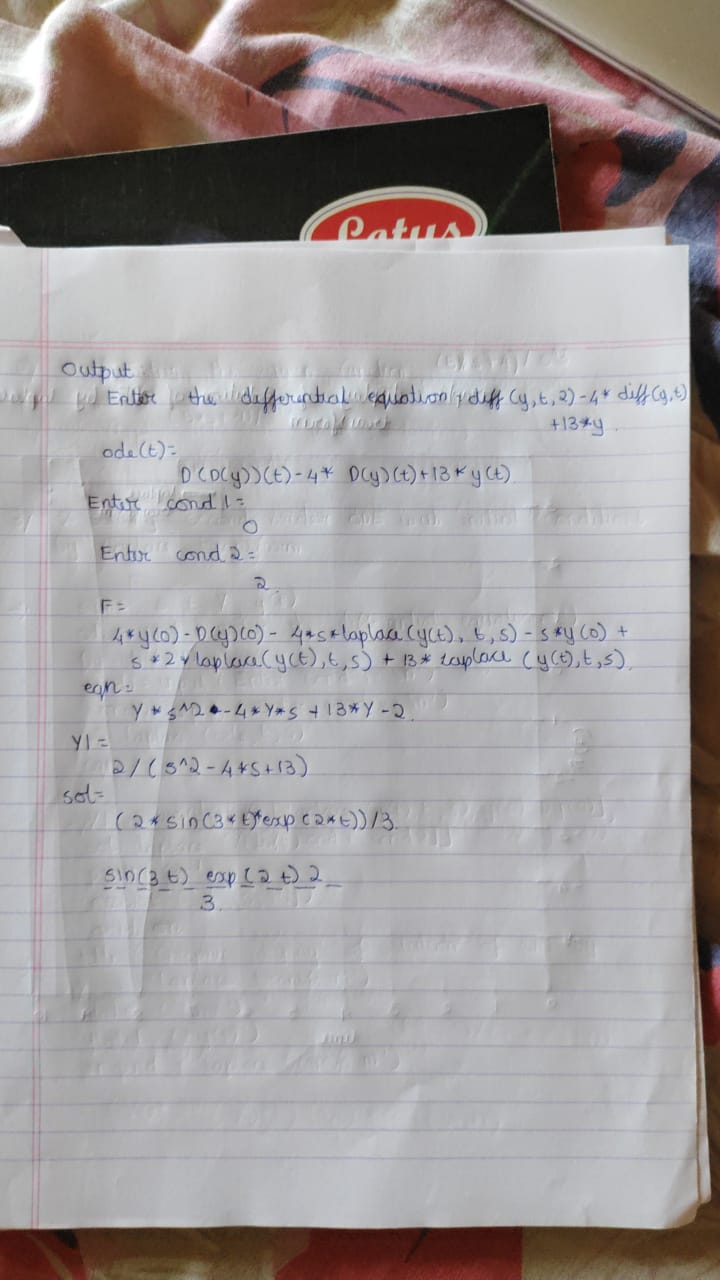 Lotus
Output
Enter the differential equation: diff (y,t,2)-4* diff(y,t)
+13*y.
ode(t)=
D(D(y))(t)-4* D(y)(t)+13*y(t)
Enter cond 1=
0
Enter cond 2=
2.
F=
4*y(0)-D(y)(0)- 4*s*laplace(y(t), t,s) - s*y(0) +
s*2*laplace(y(t),t,s) + 13* laplace (y(t),t,s).
eqn=
Y*s^2 -4*Y*s +13*Y-2.
Y1=
2/(s^2-4*s+13)
sol=
(2*sin(3*t)*exp(2*t))/3.
sin(3 t) exp(2 t) 2
3.